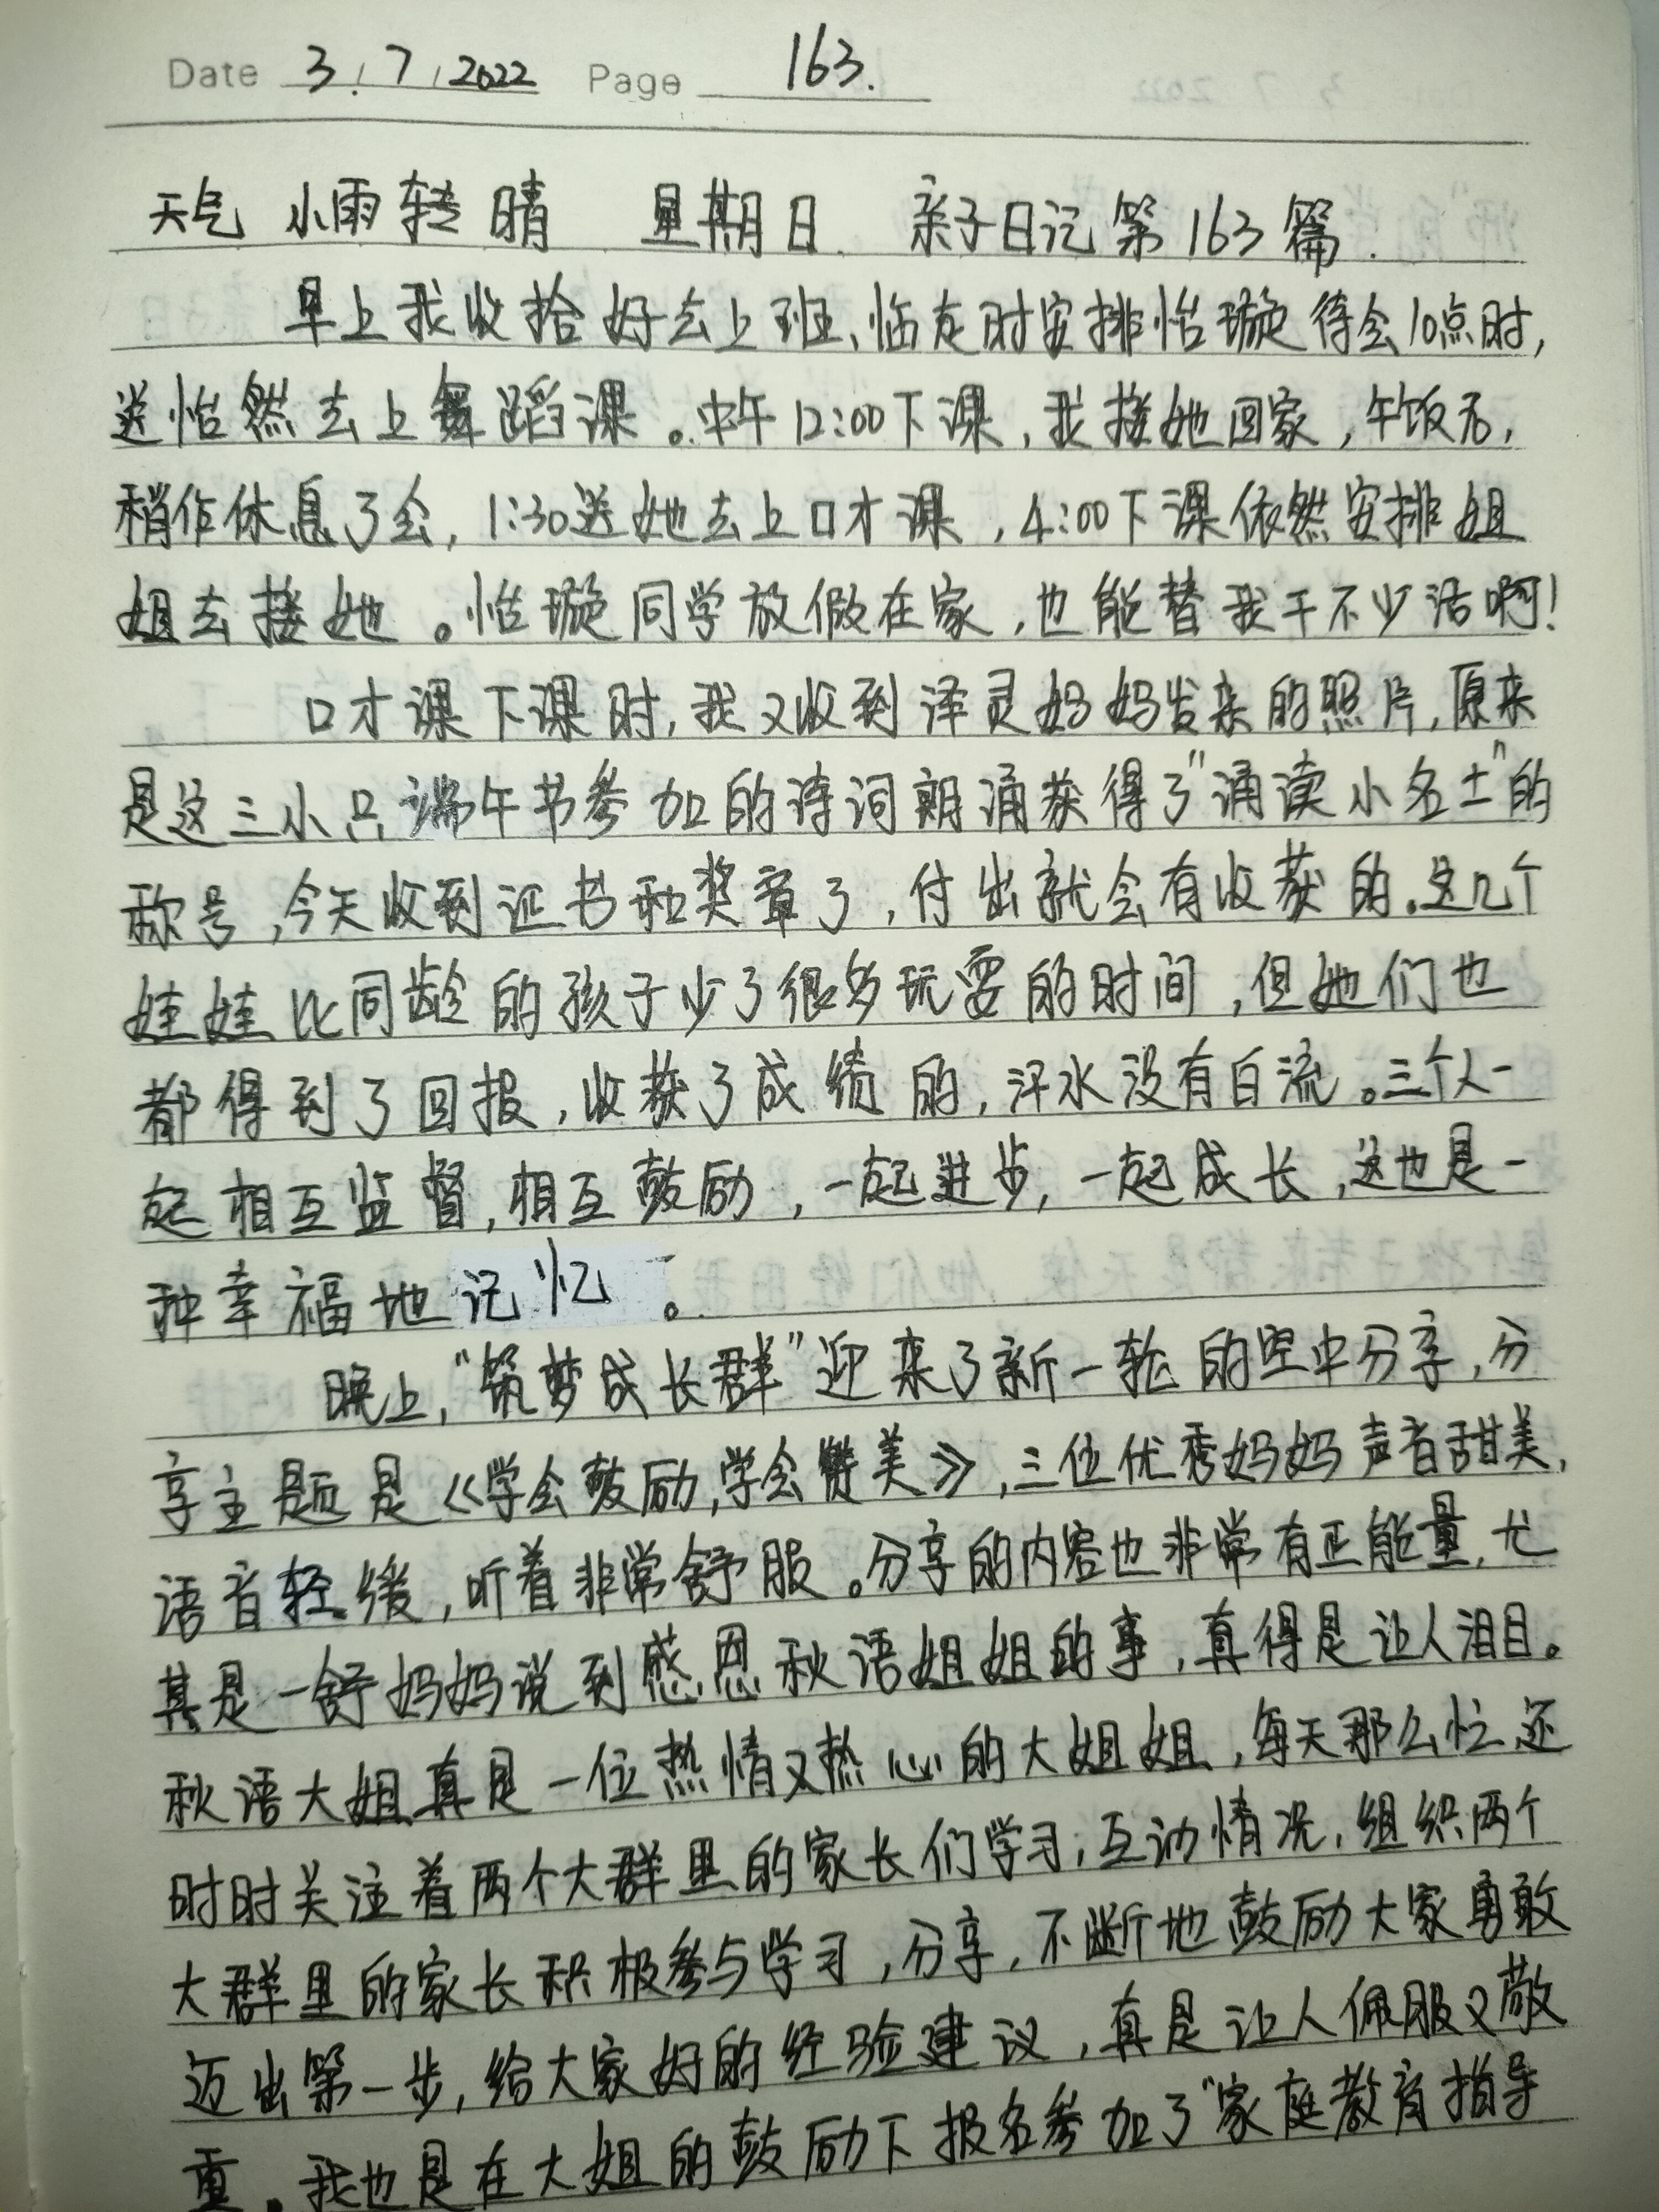 Date 3.7.2022 Page 163.
天气 小雨转晴 星期日. 亲子日记第163篇.
早上我收拾好去上班、临走时安排怡璇待会10点时,
送怡然去上舞蹈课。中午12:00下课,我接她回家,午饭后,
稍作休息了会,1:30送她去上口才课,4:00下课依然安排姐
姐去接她。怡璇同学放假在家,也能替我干不少活啊!
口才课下课时,我又收到泽灵妈妈发来的照片,原来
是这三小只端午节参加的诗词朗诵获得了"诵读小名士"的
称号,今天收到证书和奖章了,付出就会有收获的。这几个
娃娃比同龄的孩子少了很多玩耍的时间,但她们也
都得到了回报,收获了成绩的,汗水没有白流。三个人一
起相互监督,相互鼓励,一起进步,一起成长,这也是一
种幸福地记忆。
晚上,"筑梦成长群"迎来了新一轮的空中分享,分
享主题是《学会鼓励,学会赞美》,三位优秀妈妈声音甜美,
语音轻缓,听着非常舒服。分享的内容也非常有正能量,尤
其是一舒妈妈说到感恩秋语姐姐的事,真得是让人泪目。
秋语大姐真是一位热情又热心的大姐姐,每天那么忙,还
时时关注着两个大群里的家长们学习,互动情况,组织两个
大群里的家长积极参与学习,分享,不断地鼓励大家勇敢
迈出第一步,给大家好的经验建议,真是让人佩服又敬
重。我也是在大姐的鼓励下报名参加了"家庭教育指导